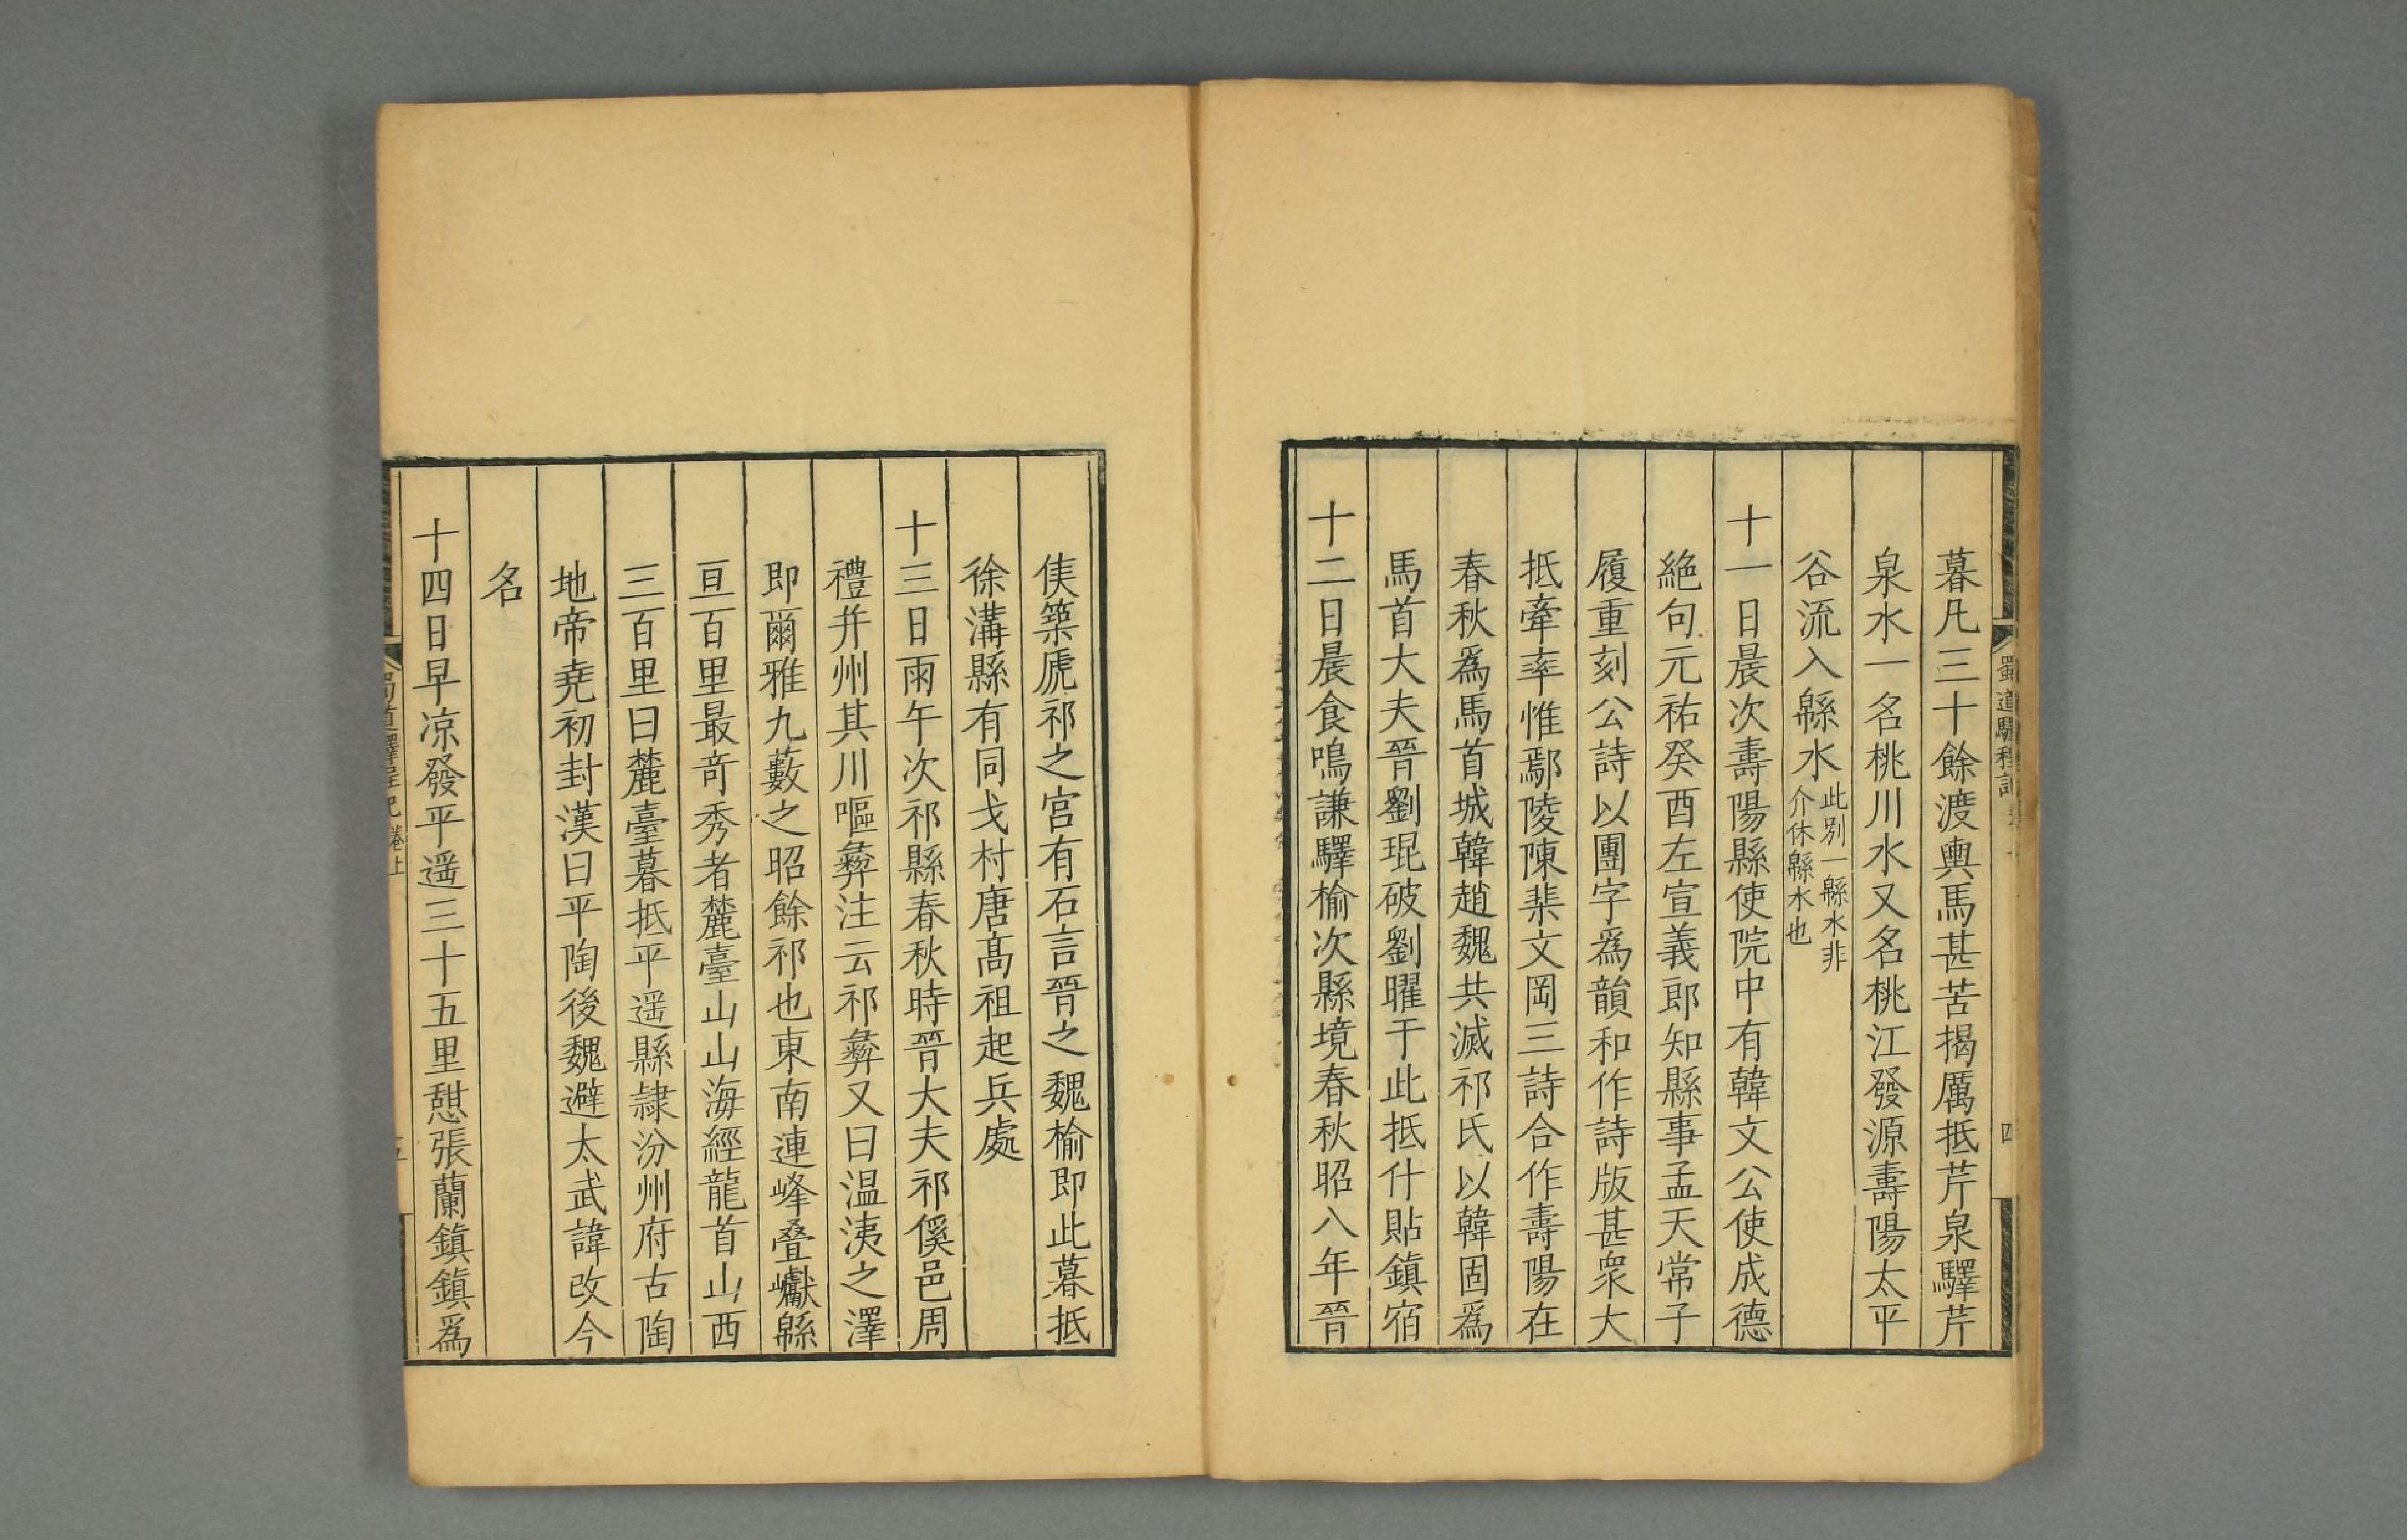 暮凡三十餘渡輿馬甚苦揭厲抵芹泉驛芹
泉水一名桃川水又名桃江發源壽陽太平
谷流入緜水此別一緜水非
介休緜水也
十一日晨次壽陽縣使院中有韓文公使成德
絶句元祐癸酉左宣義郎知縣事孟天常子
履重刻公詩以團字爲韻和作詩版甚衆大
抵牽率惟鄢陵陳棐文岡三詩合作壽陽在
春秋爲馬首城韓趙魏共滅祁氏以韓固爲
馬首大夫晉劉琨破劉曜于此抵什貼鎮宿
十二日晨食鳴謙驛榆次縣境春秋昭八年晉
矦築虒祁之宮有石言晉之魏榆即此暮抵
徐溝縣有同戈村唐髙祖起兵處
十三日雨午次祁縣春秋時晉大夫祁傒邑周
禮并州其川嘔彜注云祁彜又曰温洟之澤
即爾雅九藪之昭餘祁也東南連峰叠巘緜
亘百里最竒秀者麓臺山山海經龍首山西
三百里曰麓臺暮抵平遥縣隷汾州府古陶
地帝堯初封漢曰平陶後魏避太武諱改今
名
十四日早凉發平遥三十五里憇張蘭鎮鎮爲
蜀道驛程記
四
蜀道驛程記 卷上
五